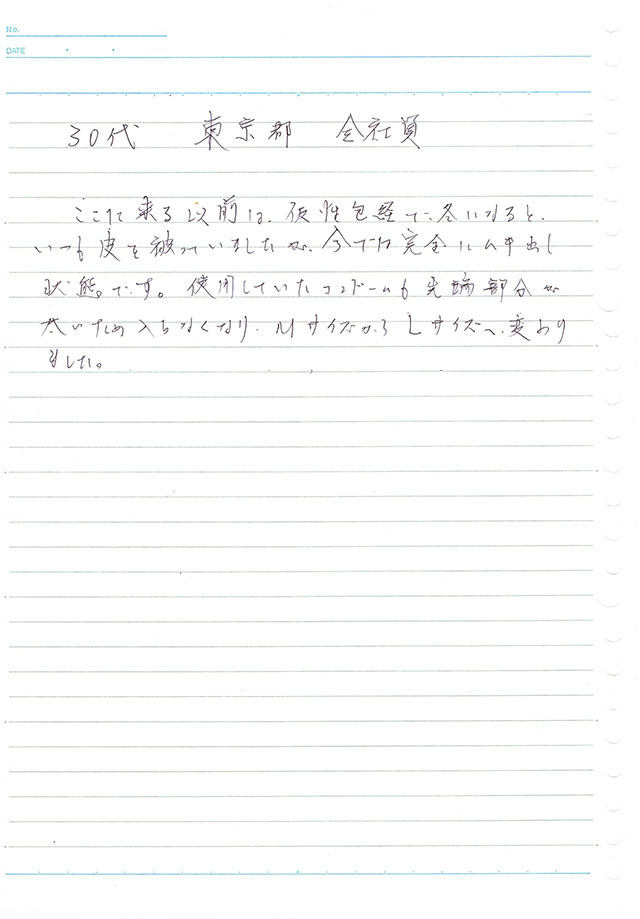 No.
DATE
30代 東京都 会社員
ここに来る以前は、仮性包経で、冬になると、
いつも皮を被っていましたが、今では完全にムキ出し
状態です。使用していたコンドームも先端部分が
太いため入らなくなり、MサイズからLサイズへ変わり
ました。